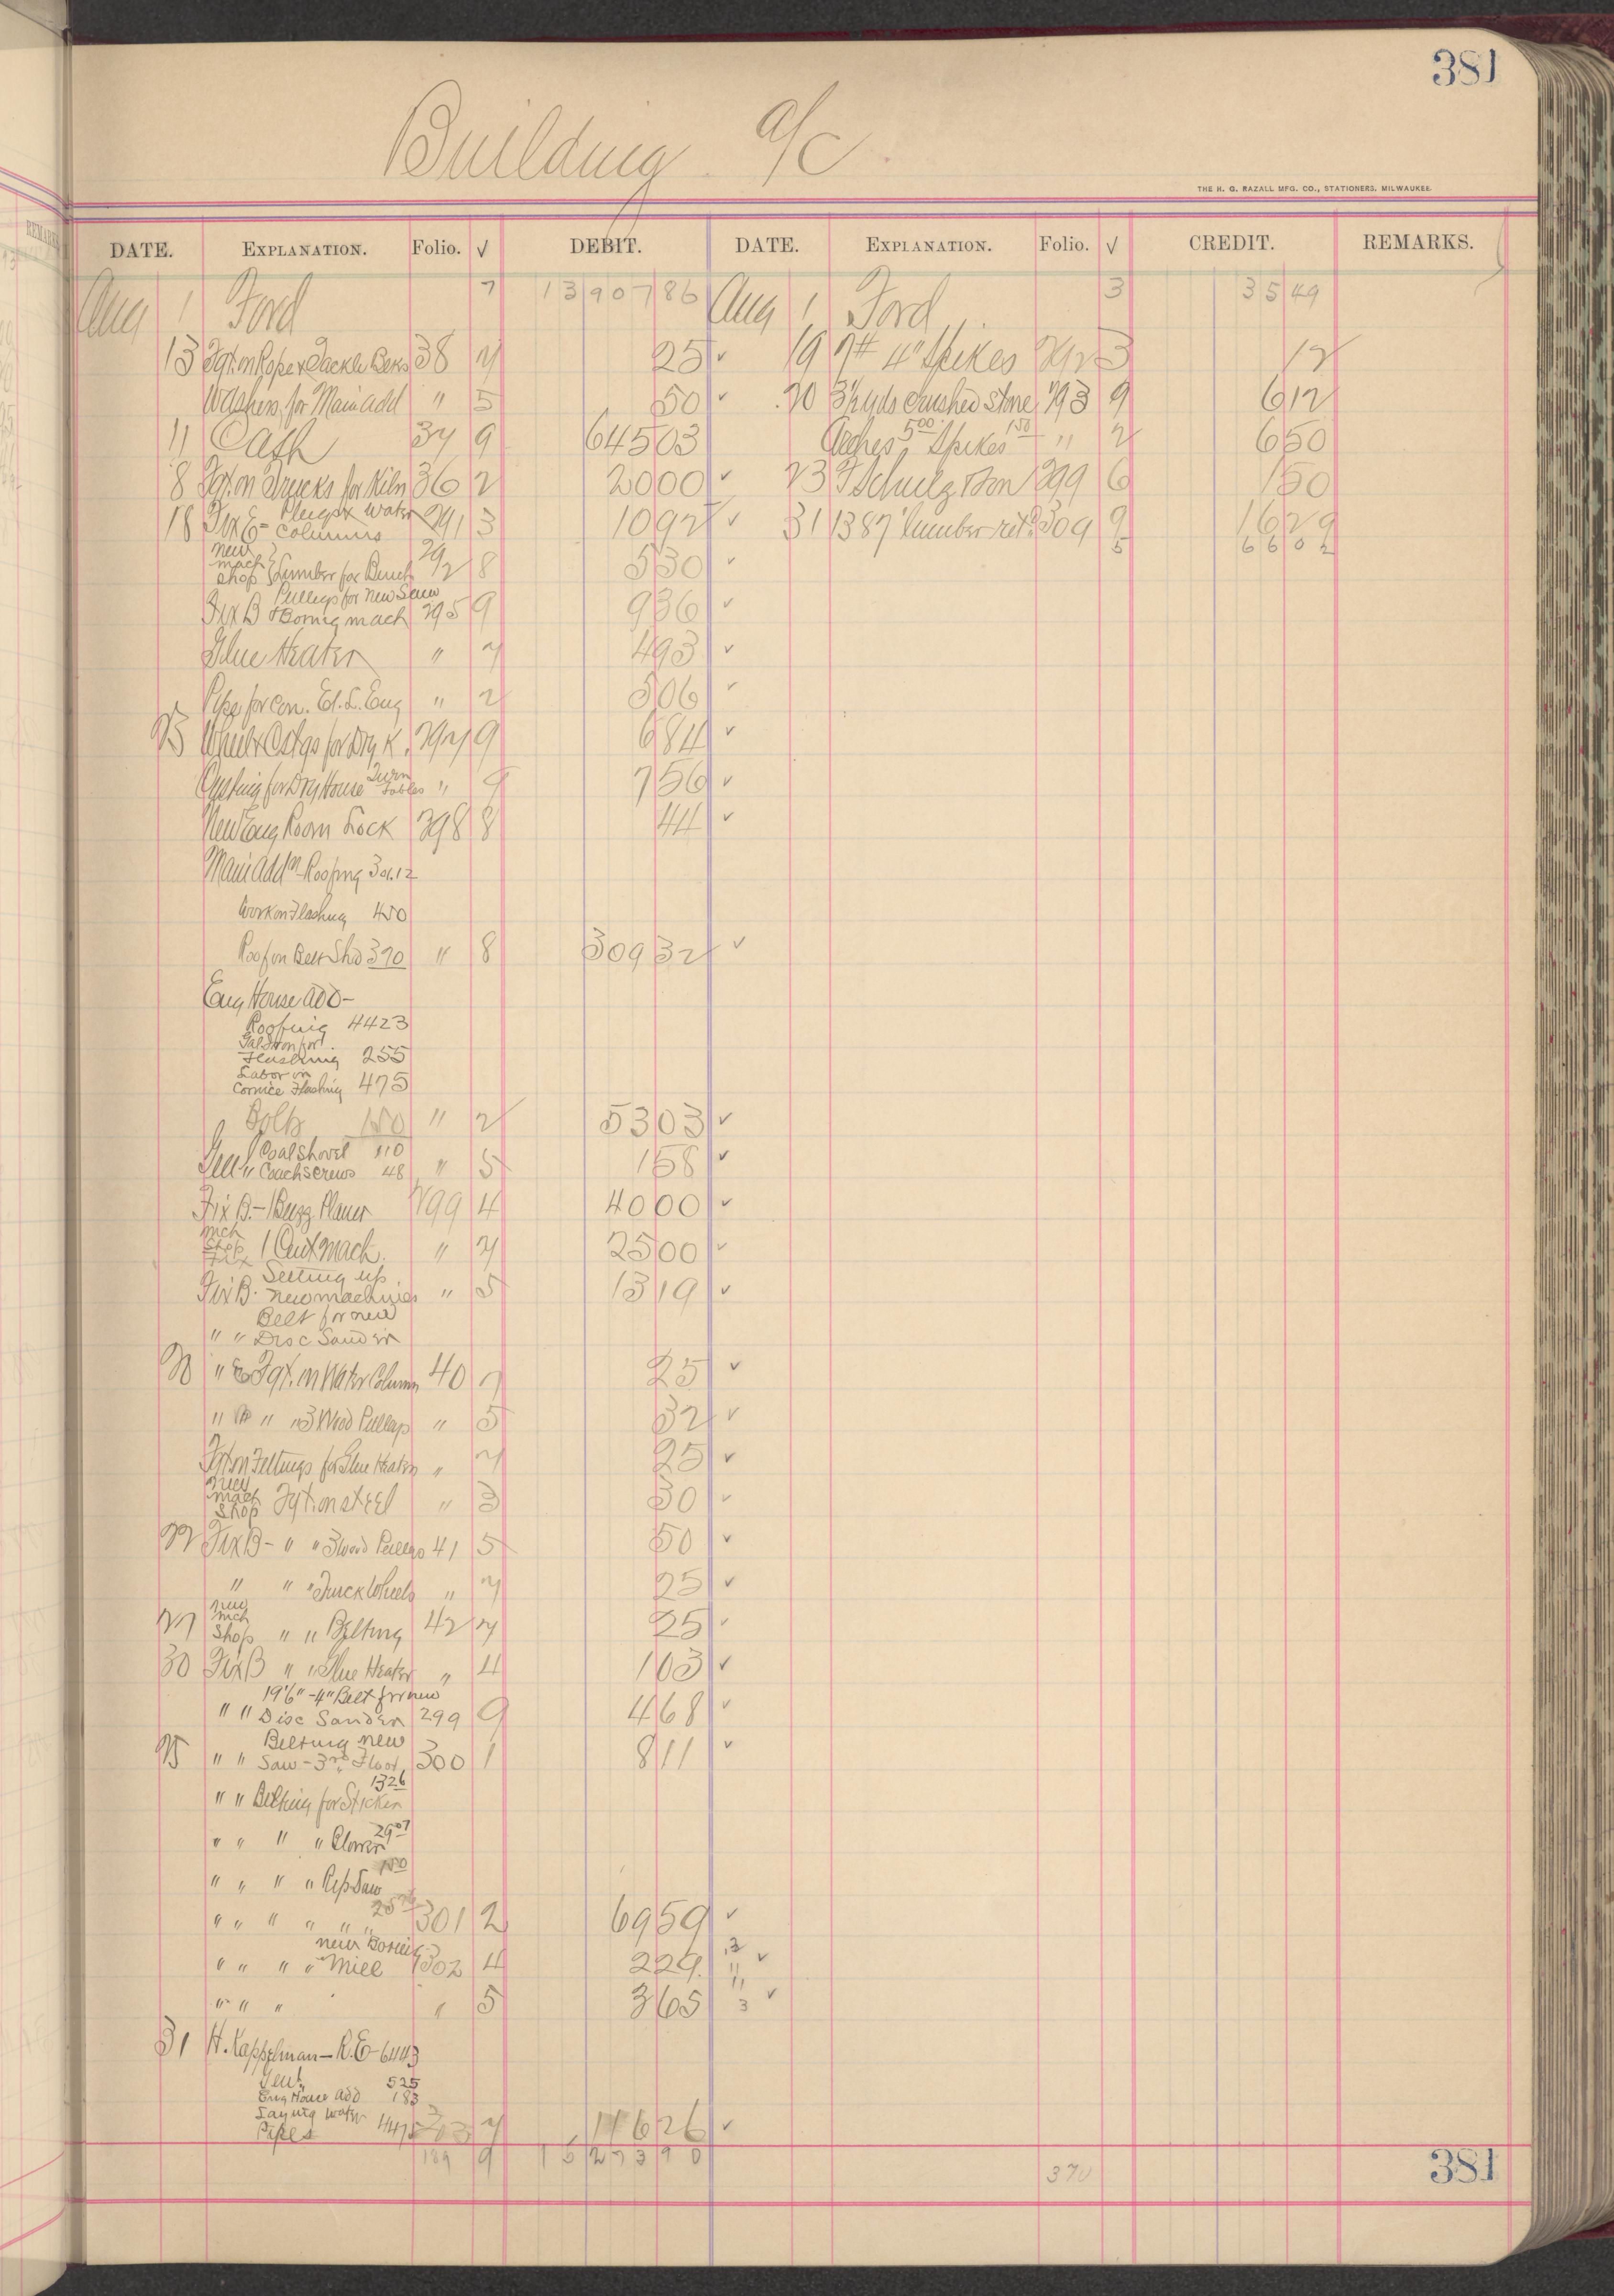 381
Building a/c
THE H. G. RAZALL MFG. CO., STATIONERS, MILWAUKEE.
DATE. EXPLANATION. Folio. √ DEBIT. DATE. EXPLANATION. Folio. √ CREDIT. REMARKS.
Aug 1 Ford 7 13907 86 Aug 1 Ford 3 35 49
13 Fgt. on Rope & Tackle 38 7 25 ✓ 19 7# 4" Spikes 292 3 12
Washers for Main add " 5 50 ✓ 20 3½ yds crushed stone 293 9 6 12
11 Cash 34 9 645 03 Arches 5 00 Spikes 1 50 " 2 6 50
8 Fgt. on Trucks for Kiln 36 2 20 00 ✓ 23 F Schulz & Son 299 6 1 50
18 Fix E - Plugs & Water Columns 291 3 10 92 ✓ 31 1387' lumber retd 309 9 16 29
5 66 02
new mach shop } Lumber for Bench 29/2 8 5 30 ✓
Fix B Pulleys for new Saw & Boring mach 295 9 9 36 ✓
Glue Heater " 7 4 93 ✓
Pipe for Con. El. L. Eng " 2 5 06 ✓
25 Wheels Cstgs for Dry K. 297 9 6 84 ✓
Casting for Dry House Turn tables " 9 7 56 ✓
New Eng Room Lock 298 8 44 ✓
Main Addn - Roofing 301.12
Work on Flashing 4 50
Roof on Belt Shd 3 70 " 8 309 32 ✓
Eng House ADD -
Roofing 44 23
Gal Iron for Flashing 2 55
Labor on Cornice Flashing 4 75
Bolts 1 50 " 2 53 03 ✓
Genl 1 Coal Shovel 1 10
" Coach screws 48 " 5 1 58 ✓
Fix B. - 1 Buzz Planer 299 4 40 00 ✓
mch Shop 1 Cut Mach. " 7 25 00 ✓
Fix B. Setting up new machines " 5 13 19 ✓
" " Belt for new Disc Sander
20 " E Fgt. on Water Column 40 7 25 ✓
" B " " 3 Wood Pulleys " 5 32 ✓
Fgt on Fittings for Glue Heater " 7 25 ✓
new mach Shop Fgt. on steel " 3 30 ✓
22 Fix B - " " 3 Wood Pulleys 41 5 50 ✓
" " " Truck Wheels " 7 25 ✓
27 new mch Shop " " Belting 42 7 25 ✓
30 Fix B " " Glue Heater " 4 1 03 ✓
" " 19'6" - 4" Belt for new Disc Sander 299 9 4 68 ✓
25 " " Belting new Saw - 3rd Floor 300 1 8 11 ✓
" " Belting for Sticker 13 26
" " " " Blower 29 07
" " " " Rip Saw 1 50
" " " " " " 301 2 69 59 ✓
" " " " new Boring Mill 302 4 2 29 ✓
" " " " 5 3 65 3 ✓
31 H. Kappelman - R.E - 64 43
Genl, 5 25
Eng House add 1 83
Laying water Pipes 44 75 7 116 26 ✓
189 9 15273 90 370
381